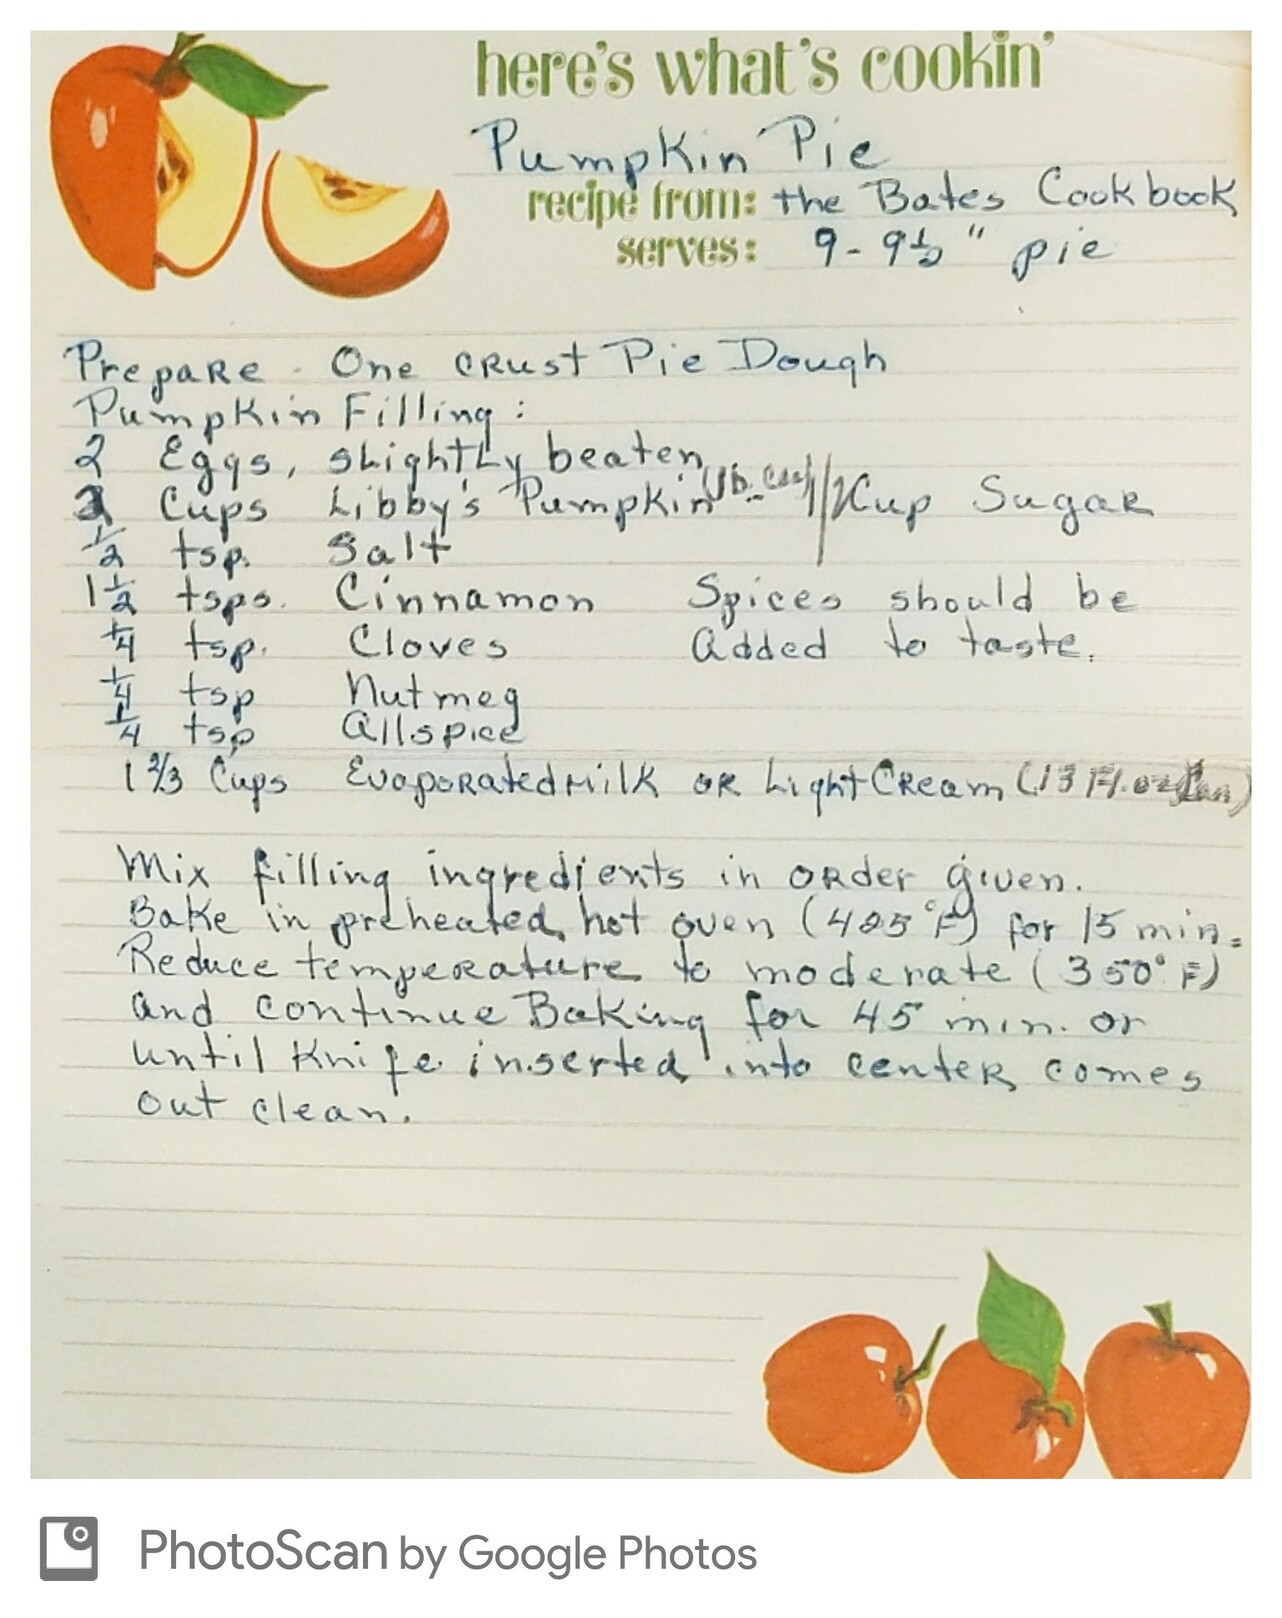 here's what's cookin'
Pumpkin Pie
recipe from: the Bates Cookbook
serves: 9-9½" pie
Prepare - One crust Pie Dough
Pumpkin Filling:
2 Eggs, slightly beaten
2 Cups Libby's Pumpkin Cup Sugar
½ tsp. Salt
1½ tsps. Cinnamon Spices should be
¼ tsp. Cloves Added to taste.
¼ tsp Nutmeg
¼ tsp Allspice
1 ⅔ Cups Evaporated Milk or Light Cream (13 Fl. oz Can)
Mix filling ingredients in order given.
Bake in preheated hot oven (425°F) for 15 min.
Reduce temperature to moderate (350°F)
and continue Baking for 45 min. or
until Knife inserted into center comes
out clean.
PhotoScan by Google Photos